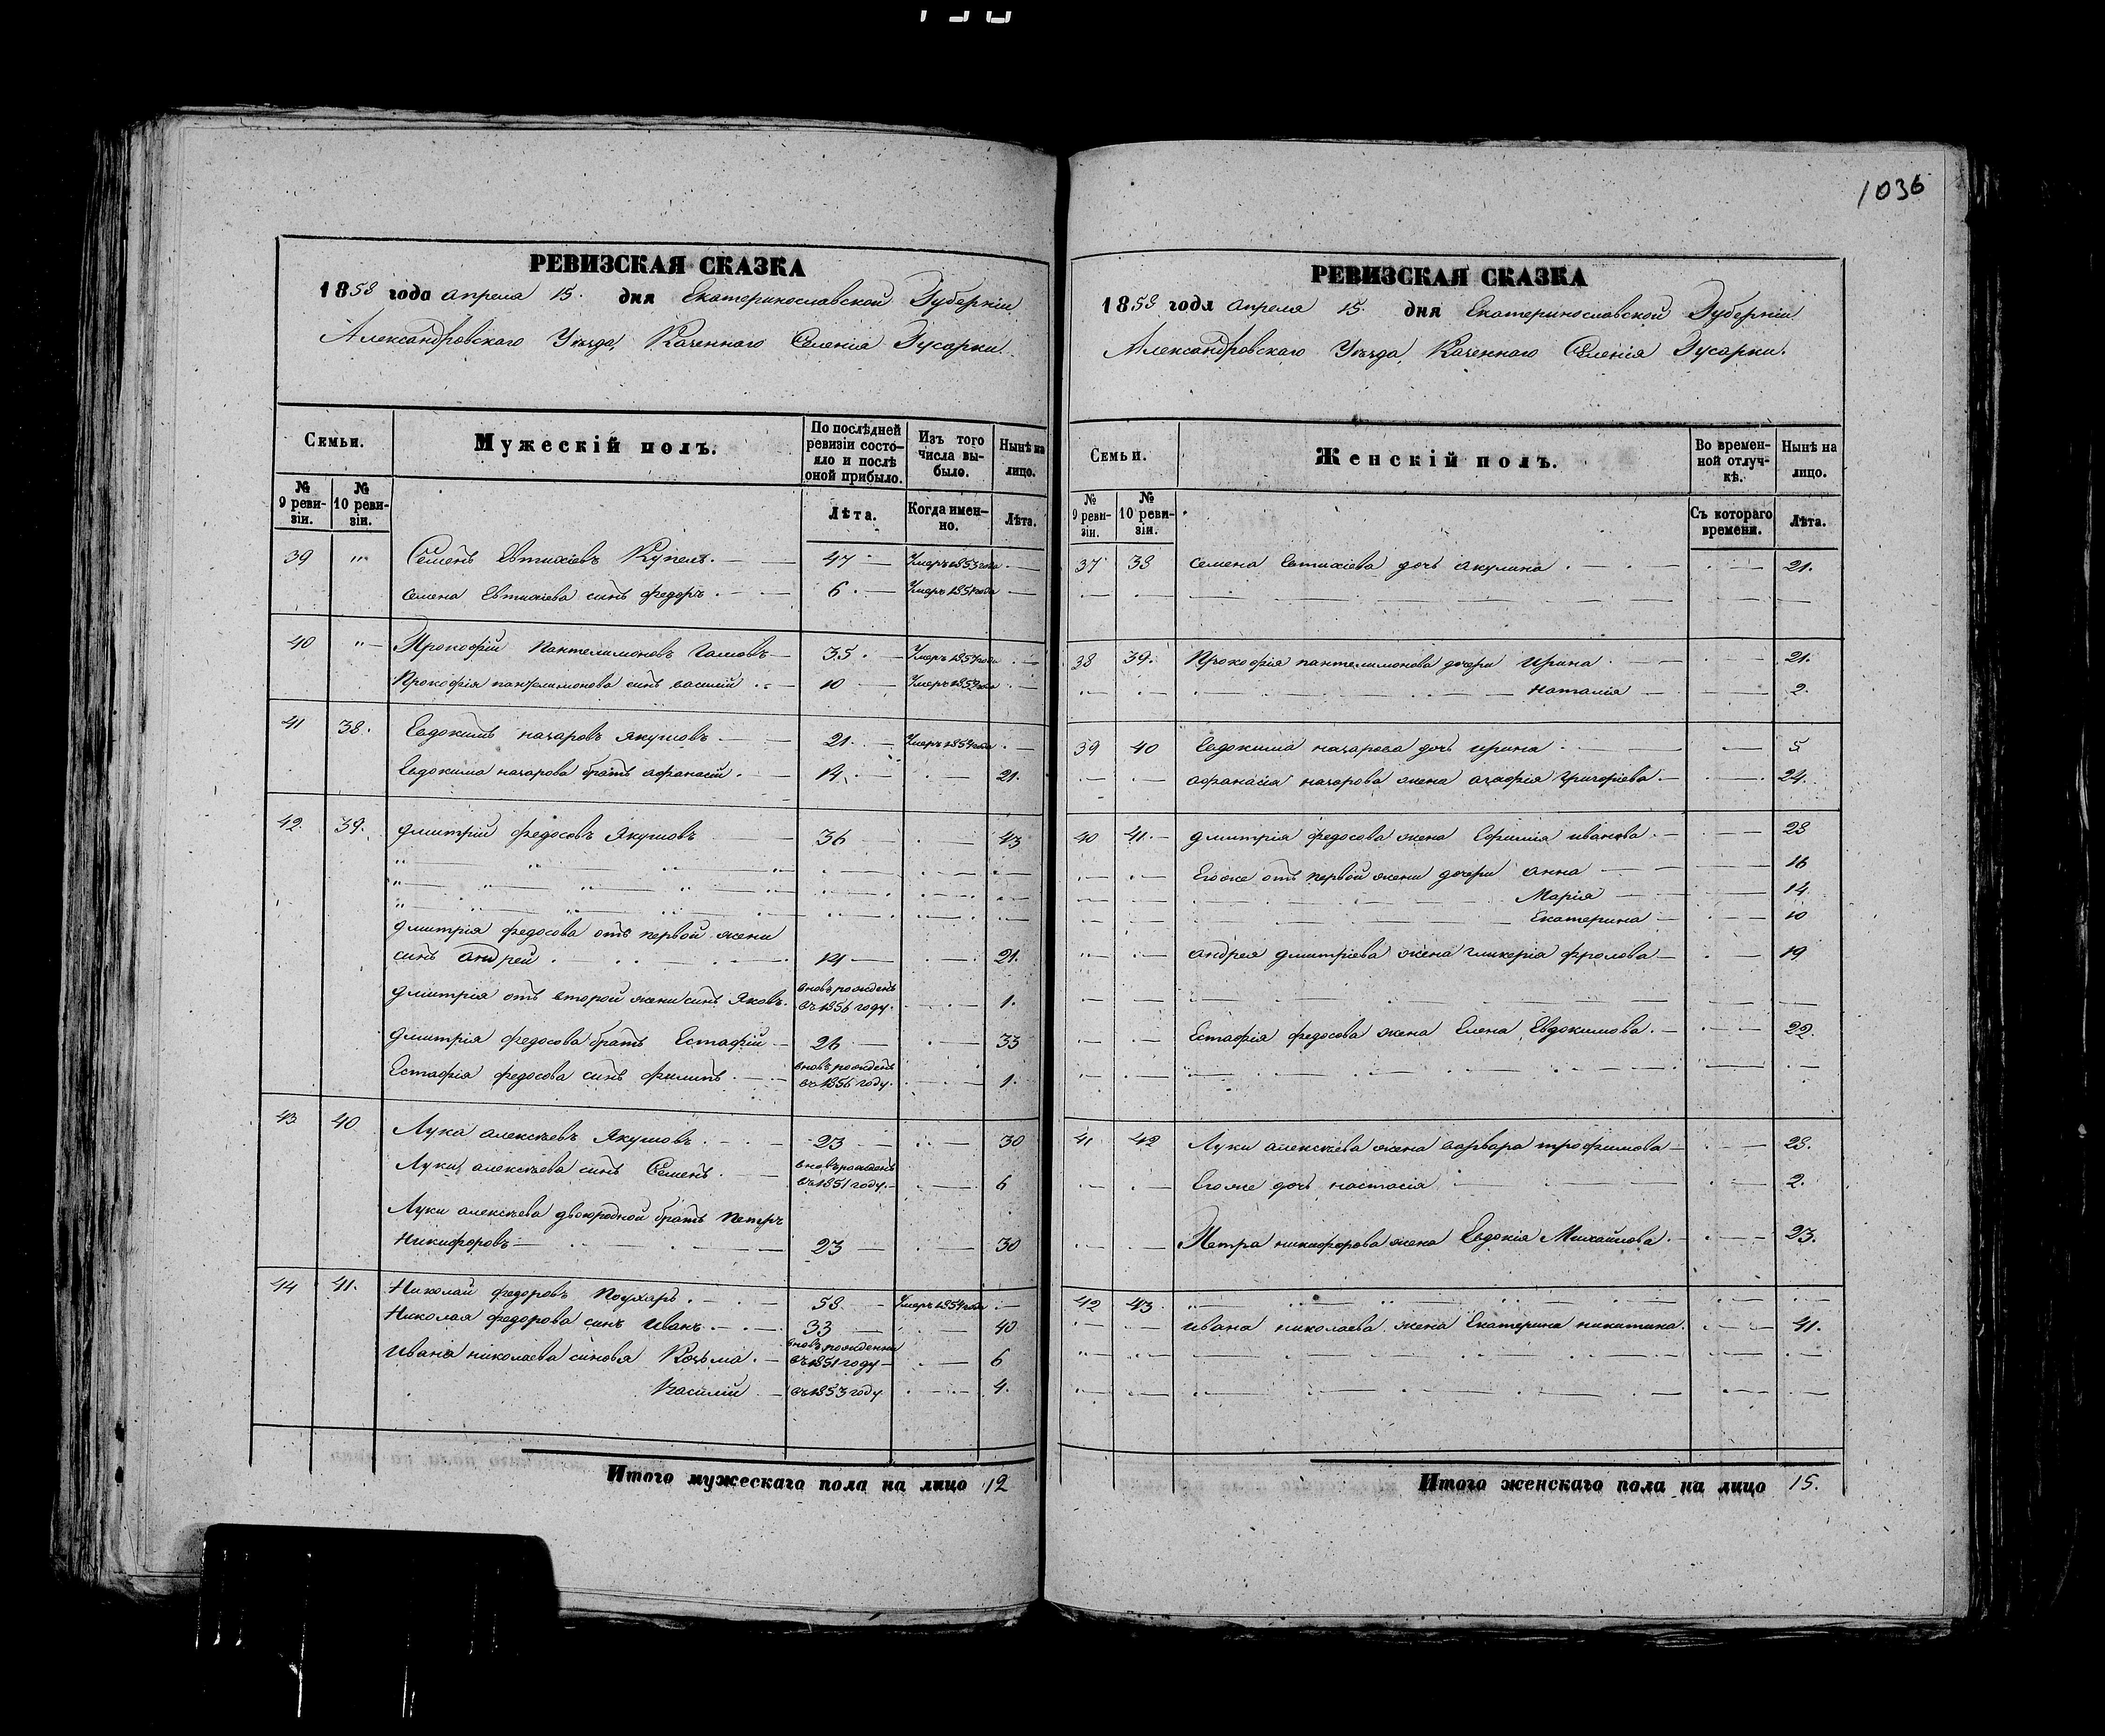 1036
РЕВИЗСКАЯ СКАЗКА
1858 года апреля 15. дня Екатеринославской Губернiи
Александровскаго Уѣзда, Казеннаго Селенiя Гусарки.
Семьи.
Мужескiй полъ.
По послѣдней ревизiи состояло и послѣ оной прибыло.
Изъ того числа выбыло.
Нынѣ на лицо.
№ 9 ревизiи.
№ 10 ревизiи.
Лѣта.
Когда именно.
Лѣта.
39 " Семенъ Евтихiевъ 47 Умеръ 1853 года
Семена Евтихiева синъ федоръ 6 Умеръ 1851 года
40 " Прокофiй Пантелимоновъ 35 Умеръ года
Прокофiя пантелимонова синъ василiй 10 Умеръ
41 38. Евдокимъ назаровъ Якушовъ 21. Умеръ 1854 года
Евдокима назарова братъ афанасiй 14. 21.
42. 39. дмитрiй федосовъ Якушовъ 36 43
дмитрiя федосова отъ первой жени
синъ андрей 14 21.
дмитрiя отъ второй жени синъ Яковъ. вновь рожденъ въ 1856 году. 1.
дмитрiя федосова братъ Естафiй 26 33
Естафiя федосова синъ филипъ вновь рожденъ въ 1856 году. 1.
43 40 Лука алексѣевъ Якушовъ 23 30
Луки алексѣева синъ Семенъ вновь рожденъ въ 1851 году. 6
Луки алексѣева двоюродной братъ петръ
Никифоровъ 23 30
44 41. Николай федоровъ 58 Умеръ 1854 года
Николая федорова синъ Иванъ 33 40
Ивана николаева синовья Козьма вновь рожденни въ 1851 году 6
Василiй въ 1853 году 4.
Итого мужескаго пола на лицо 12
РЕВИЗСКАЯ СКАЗКА
1858 года апреля 15. дня Екатеринославской Губернiи
Александровскаго Уѣзда, Казеннаго Селенiя Гусарки.
Семьи.
Женскiй полъ.
Во временной отлучкѣ.
Нынѣ на лицо.
№ 9 ревизiи.
№ 10 ревизiи.
Съ котораго времени.
Лѣта.
37 38 семена Евтихiева дочь акулина 21.
38 39. Прокофiя пантелимонова дочери Ирина 21.
наталiя 2.
39 40 Евдокима назарова дочь ирина 5
афанасiя назарова жена агафiя григорiева 24.
40 41. дмитрiя федосова жена Ефимiя иванова 28
Егоже отъ первой жени дочери анна 16
Марiя 14.
Екатерина 10
андрея дмитрiева жена гликерiя фролова 19
Естафiя федосова жена Елена Евдокимова. 22.
41. 42 Луки алексѣева жена варвара трофимова 28.
Егоже дочь настасiя 2.
Петра никифорова жена Евдокiя Михайлова 23.
42 43.
ивана николаева жена Екатерина никитина. 41.
Итого женскаго пола на лицо 15.